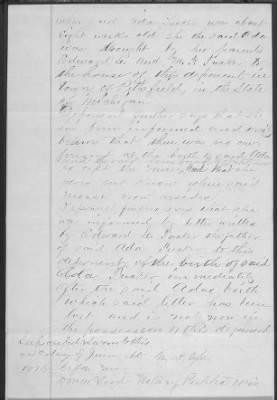 when said Ada Tucker was about
eight weeks old she the said Ada
was brought by her parents
Edward L. and M. J. Tucker to
the house of this deponent in
town of Pittsfield, in the State
of Michigan.
Deponent further says that she
has been informed and
believes that there was no one
present at the birth of said Ada
except the nurse, and that she
does not know where said
nurse now resides.
Deponent further says that she
was informed by letter written
by Edward L. Tucker father
of said Ada Tucker to this
deponent of the birth of said
Ada Tucker immediately
after the said Adas birth
which said letter has been
lost and is not now in
the possession of this deponent
Subscribed & sworn to this
day of June AD
1873 before me
Notary Public